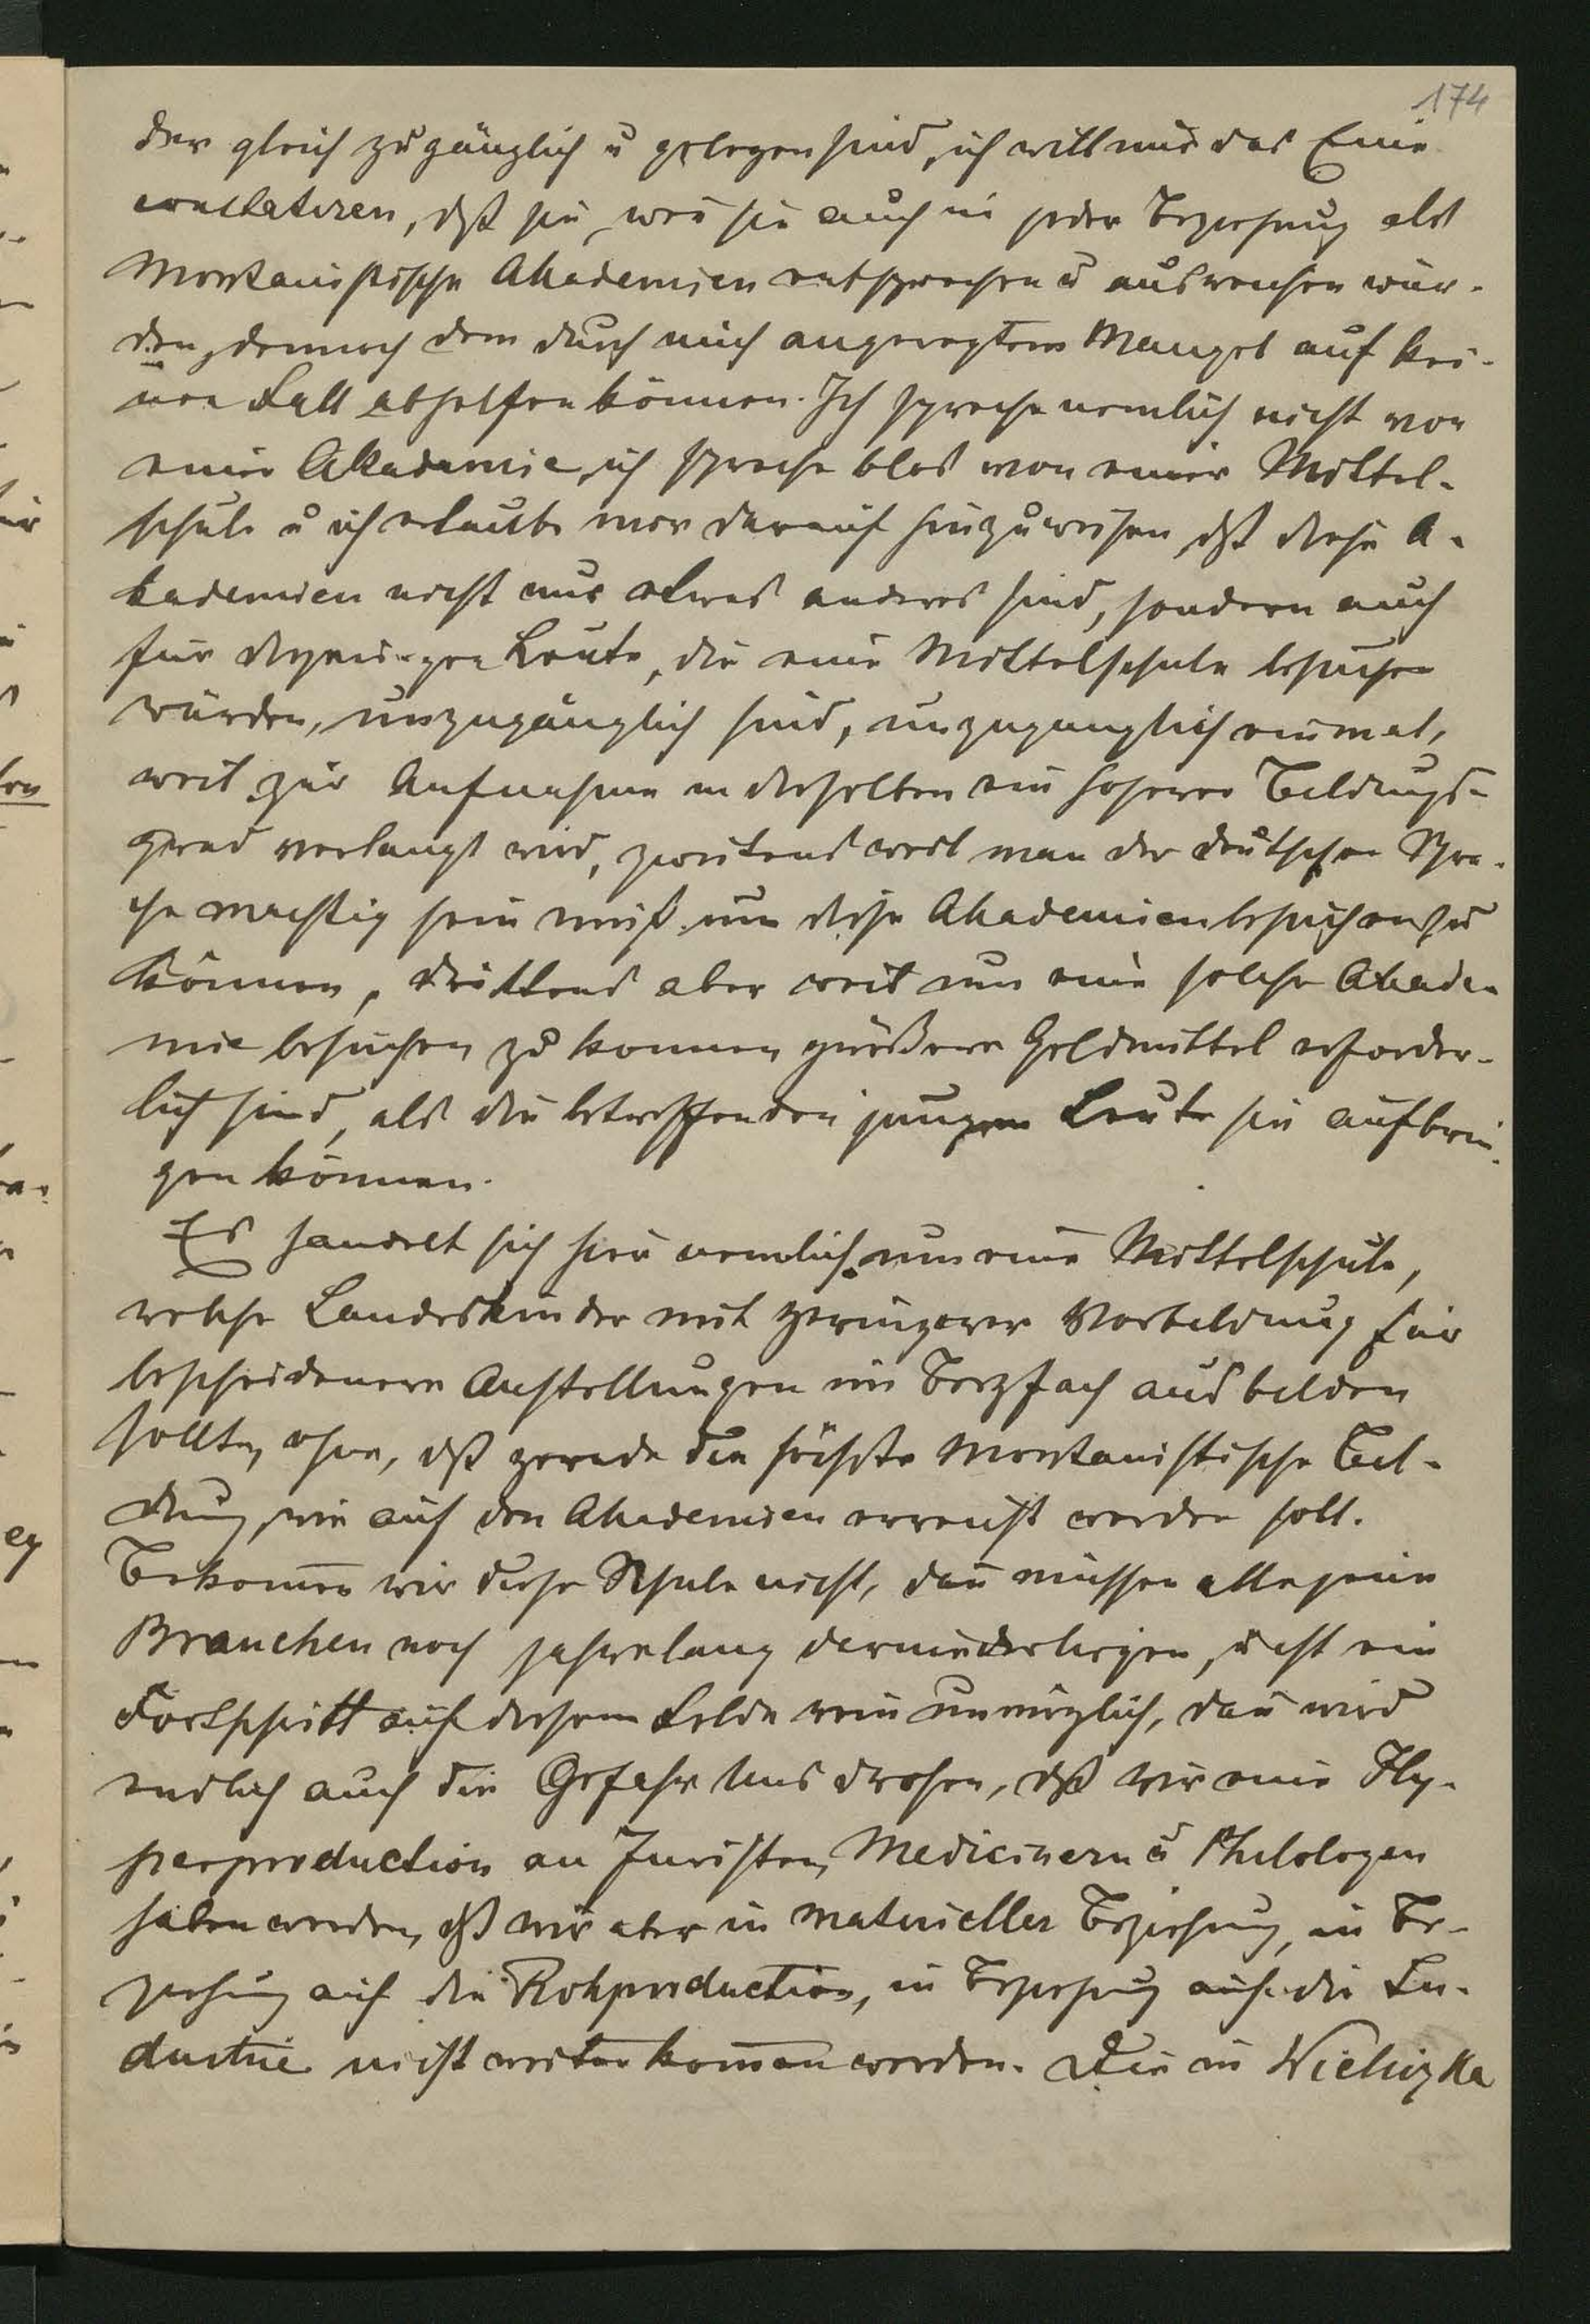 174
der gleich zugänglich u gelegen sind, ich will nur das Eine
constatiren, dß sie, wenn sie auch in jeder Beziehung als
Montanistische Akademien entsprechen u ausreichen wür-
den, dennoch dem durch mich angeregten Mangel auf kei-
nen Fall abhelfen können. Ich spreche nemlich nicht von
einer Akademie, ich spreche blos von einer Mittel-
schule u ich erlaube mir darauf hinzuweisen, dß diese A-
kademien nicht nur etwas anderes sind, sondern auch
für diejenigen Leute, die eine Mittelschule besuchen
würden, unzugänglich sind, unzugänglich einmal,
weil zur Aufnahme in dieselben ein höherer Bildungs-
grad verlangt wird, zweitens weil man der deutschen Spra-
che mächtig sein muß, um diese Akademien besuchen zu
können, drittens aber weil um eine solche Akade-
mie besuchen zu können größere Geldmittel erforder-
lich sind, als die betreffenden jungen Leute sie aufbrin-
gen können.
Es handelt sich hier nemlich um eine Mittelschule,
welche Landeskinder mit geringerer Vorbildung für
bescheidenere Anstellungen im Bergfach ausbilden
sollte, ohne, dß gerade die höchste Montanistische Bil-
dung, wie auf den Akademien erreicht werden soll.
Bekom̄en wir diese Schule nicht, dan̄ müssen alle jene
Branchen noch jahrelang darniederliegen, ist ein
Fortschritt auf diesem Felde rein unmöglich, dan̄ wird
endlich auch die Gefahr uns drohen, dß wir eine Hy-
perproduction an Juristen, Medicinern u Philologen
haben werden, dß wir aber in materieller Beziehung, in Be-
ziehung auf die Rohproduction, in Beziehung auf die In-
dustrie nicht weiter kom̄en werden. Die in Wieliczka